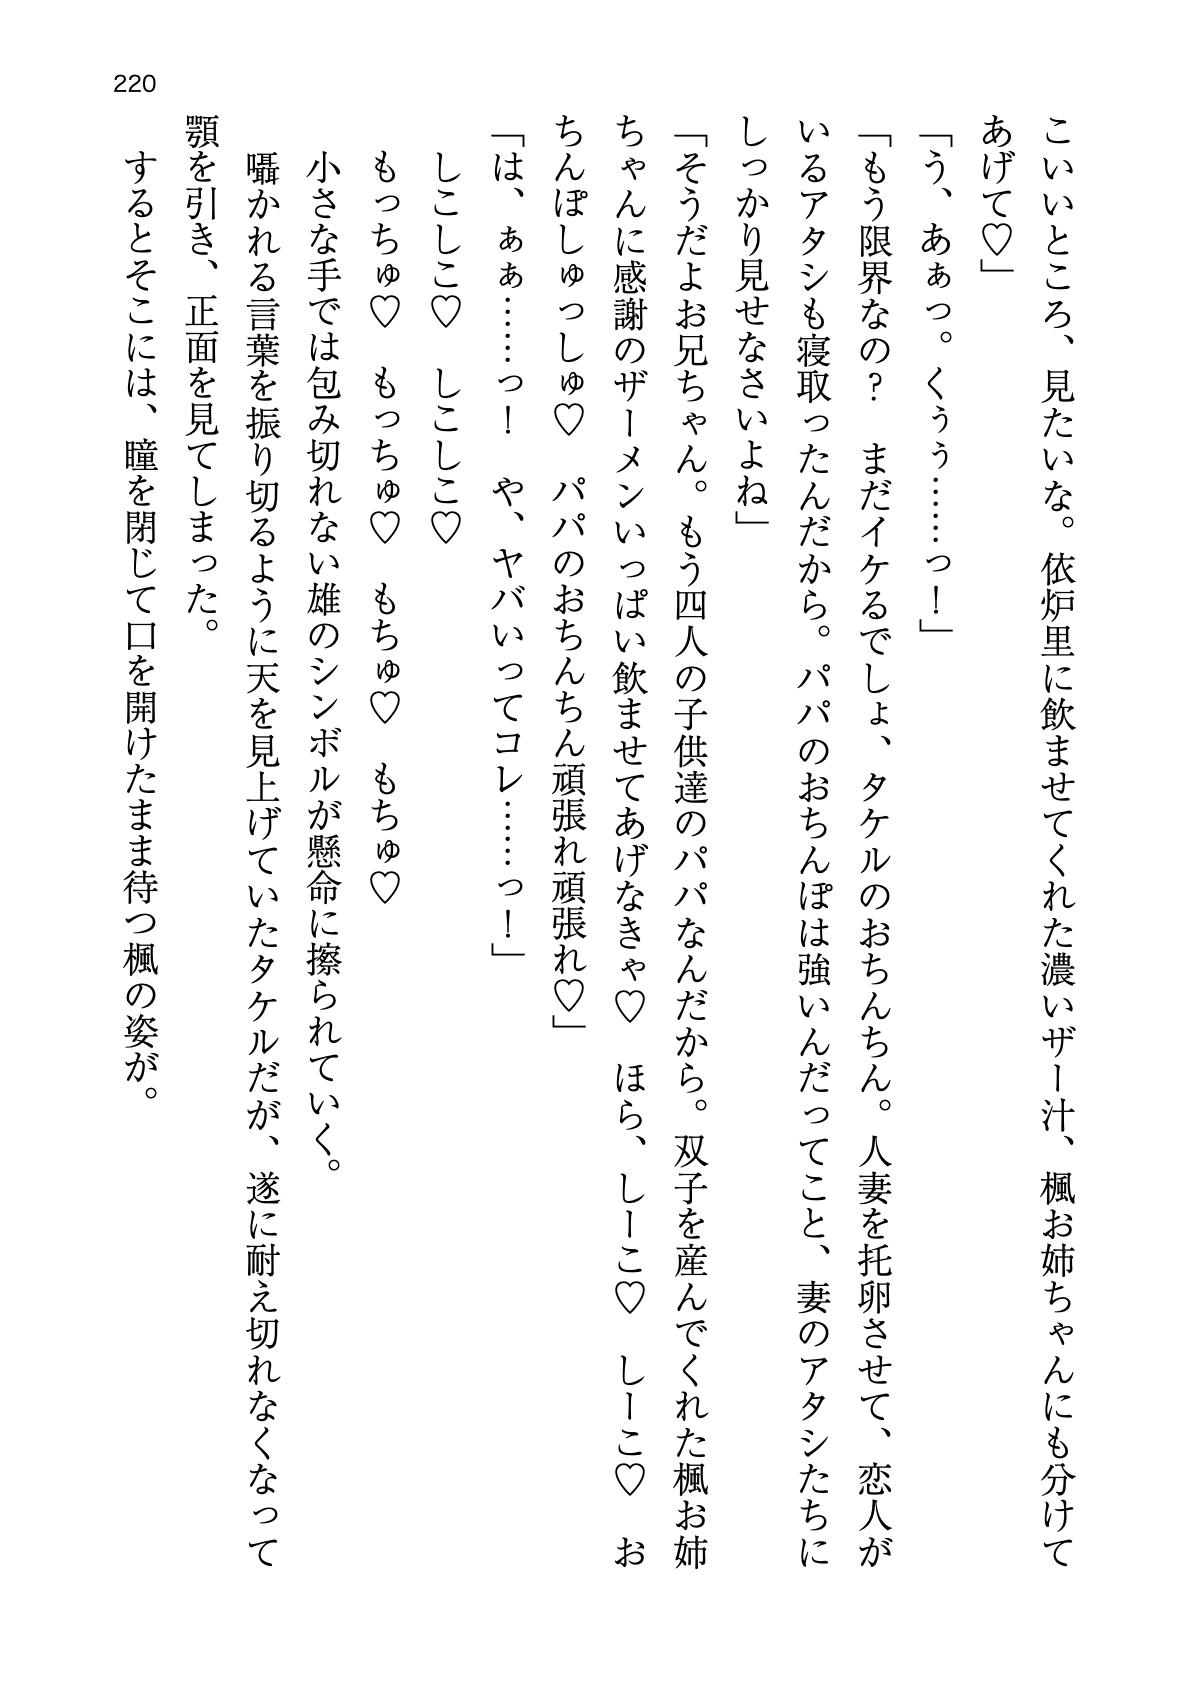 220
こいいところ、見たいな。依炉里に飲ませてくれた濃いザー汁、楓お姉ちゃんにも分けて
あげて♡」
「う、あぁっ。くぅぅ……っ！」
「もう限界なの？　まだイケるでしょ、タケルのおちんちん。人妻を托卵させて、恋人が
いるアタシも寝取ったんだから。パパのおちんぽは強いんだってこと、妻のアタシたちに
しっかり見せなさいよね」
「そうだよお兄ちゃん。もう四人の子供達のパパなんだから。双子を産んでくれた楓お姉
ちゃんに感謝のザーメンいっぱい飲ませてあげなきゃ♡　ほら、しーこ♡　しーこ♡　お
ちんぽしゅっしゅ♡　パパのおちんちん頑張れ頑張れ♡」
「は、ぁぁ……っ！　や、ヤバいってコレ……っ！」
　しこしこ♡　しこしこ♡
　もっちゅ♡　もっちゅ♡　もちゅ♡　もちゅ♡
　小さな手では包み切れない雄のシンボルが懸命に擦られていく。
　囁かれる言葉を振り切るように天を見上げていたタケルだが、遂に耐え切れなくなって
顎を引き、正面を見てしまった。
　するとそこには、瞳を閉じて口を開けたまま待つ楓の姿が。